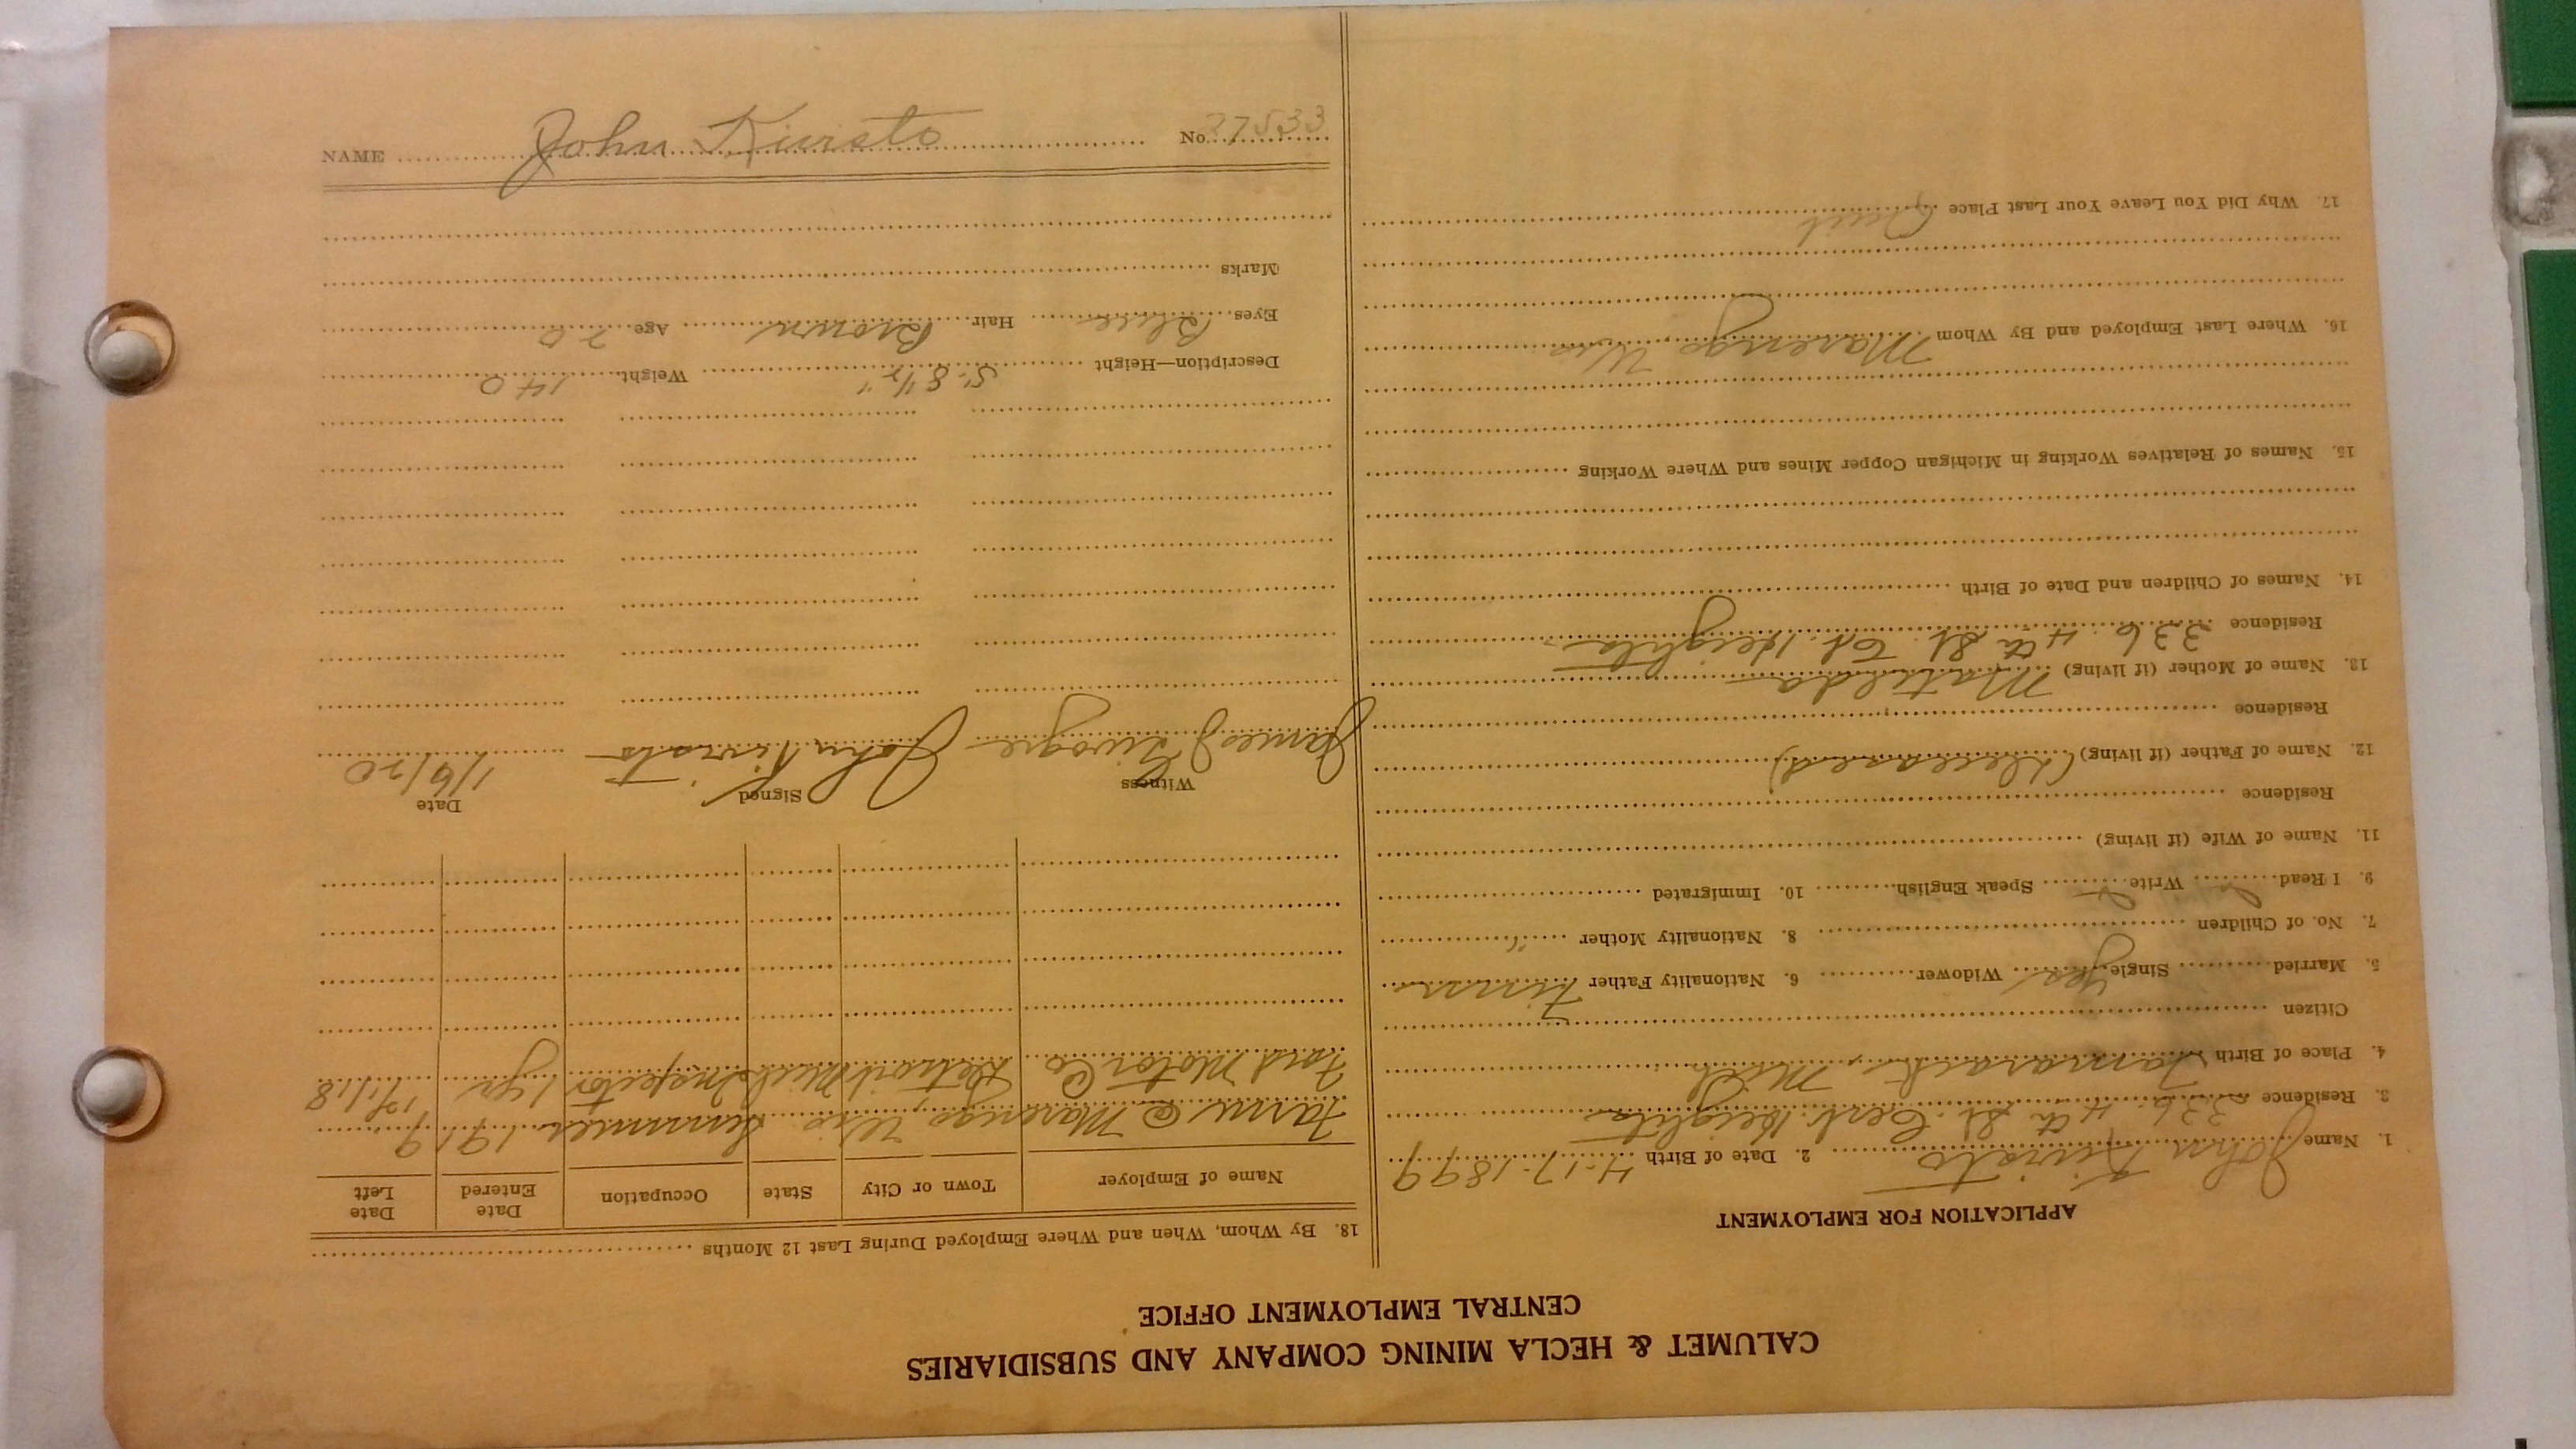 CALUMET & HECLA MINING COMPANY AND SUBSIDIARIES
CENTRAL EMPLOYMENT OFFICE
APPLICATION FOR EMPLOYMENT
1. Name John Kivisto 2. Date of Birth 4-17-1899
3. Residence 336. 4th St. Heights
4. Place of Birth Tamarack, Mich
Citizen
5. Married Single yes Widower 6. Nationality Father Finn
7. No. of Children 8. Nationality Mother "
9. I Read Write Speak English 10. Immigrated
11. Name of Wife (if living)
Residence
12. Name of Father (if living) (deceased)
Residence
13. Name of Mother (if living) Matilda
Residence 336. 4th St. Heights
14. Names of Children and Date of Birth
15. Names of Relatives Working in Michigan Copper Mines and Where Working
16. Where Last Employed and By Whom Marengo Wis
17. Why Did You Leave Your Last Place Quit
18. By Whom, When and Where Employed During Last 12 Months
Name of Employer Town or City State Occupation Date Entered Date Left
Farm @ Marengo, Wis. Summer 1919
Ford Motor Co Detroit Mich Inspector 1 yr 12/1/18
Witness Signed Date
James J John Kivisto 1/6/20
Description—Height 5'-8 1/2" Weight 140
Eyes Blue Hair Brown Age 20
Marks
NAME John Kivisto No. 27533